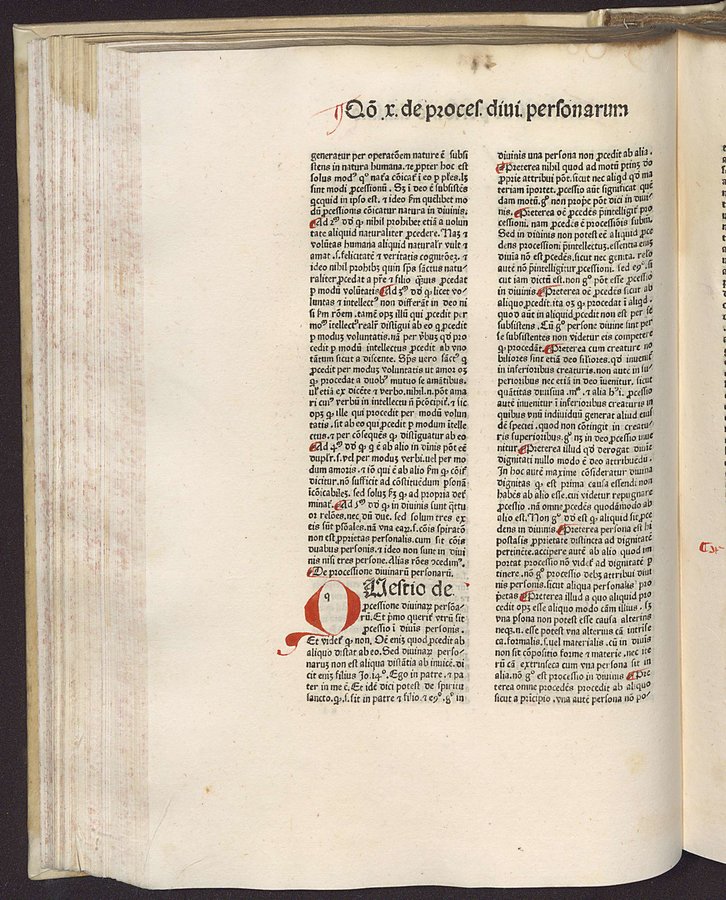 Qō .x. de proces. diui. personarum
generatur per operatōem nature ē subsi
stens in natura humana. ⁊ ꝓpter hoc est
solus modꝰ
sint modi ꝓcessionū. Sꝫ ideo ē subsistēs
qcquid in ipso est. ⁊ ideo ẜm quēlibet mo
dū ꝓcessionis cōicatur natura in diuinis.
Ad dꝙ nihil prohibet etiā a volun
tate aliquid naturaliter ꝓcedere. Naꝫ ⁊
volūtas humana aliquid naturalr̄ vult ⁊
amat .s. felicitatē ⁊ veritatis cognitōeꝫ. ⁊
ideo nihil prohibꝫ quin sp̄s sāctus natu-
raliter ꝓcedat a pr̄e ⁊ filio ꝓcedat
ꝑ modū volūtatis. Ad dꝙ licet vo-
luntas ⁊ intellectꝰ non differāt in deo ni
si ẜm rōem. tamē opꝫ illū qui ꝓcedit per
distigui ab eo q ꝓcedit
ꝑ modū voluntatis. nā per v̄bū qd ꝓ
cedit ꝑ modū intellectus ꝓcedit ab vno
tātum sicut a dicente. Sp̄s vero sāctꝰ q
ꝓcedit per modū voluntatis ut amor oꝫ
ꝙ procedat a duobꝰ mutuo se amātibus.
ul etiā ex dicēte ⁊ verbo. nihil .n. pōt ama
ri cuiꝰ verbū in intellectu nō p̄cōcipit. ⁊ sic
opꝫ ꝙ ille qui procedit per modū volun
tatis .sit ab eo qui ꝓcedit ꝑ modum intelle
ctus. ⁊ per cōsequēs ꝙ distiguatur ab eo
Ad dꝙ ē ab alio in diuis pōt eē
duplr̄ .s. vel per modū verbi. vel per mo
dum amoris. ⁊ iō qui ē ab alio ẜm ꝙ cōiē
dicitur. nō sufficit ad cōstituēdum psonā
icōicabileꝫ. sed solus ad propria det
minatꝰ. Ad dꝙ in diuinis sunt
or relōes. nec dū dut. sed solum tres ex
eis sūt psōales. nā vna .s. cōis spiratō
non est ꝓprietas personalis. cum sit cōis
duabus personis. ⁊ ideo non sunt in diui
nis nisi tres persone. Alias rōes
De processione diuinarū personarū.
QUestio de
ꝓcessione diuinaꝝ persōa-
rū. Et pmo querit vtrū sit
ꝓcessio i diuis personis.
Et videt ꝙ non. Oē eniꝫ quod ꝓcedit ab
aliquo distat ab eo. Sed diuinaꝝ perso-
narū non est aliqua distātia ab inuicē. di
cit eniꝫ filius Jo. Ego in patre. ⁊ pa
ter in me ē. Et idē dici potest de spiritu
sancto. ꝙ .s. sit in patre ⁊ filio. ⁊ in
diuinis una persona non ꝓcedit ab alia.
Preterea nihil quod ad motū ptinꝫ ꝓ
prie attribui pōt. sicut nec aliqd qd ma
teriam īportet. ꝓcessio aūt significat quē
dam motū. non prope pōt dici in diui-
nis. Preterea oē ꝓcedēs pintelligit pro
cessioni. nam ꝓcedēs ē processiōis subm.
Sed in diuinis non potest eē aliquid ꝓce
dens processioni pintellectus. essentia
diuia nō est ꝓcedēs. sicut nec genita. relō
autē nō pintelligitur ꝓcessioni. sed eꝯ. si
cut iam dictū est. non potest esse ꝓcessio
in diuinis. Preterea oē ꝓcedēs sicut ab
aliquo ꝓcedit. ita oꝫ ꝙ procedat i aliqd.
quod aūt in aliquid ꝓcedit non est per se
subsistens. Cū persone diuine sint per
se subsistentes non videtur eis competere
ꝙ procedāt. Preterea cum creature no
biliores sint etiā deo siliores. qd inuenit
in inferioribus creaturis. non autē in su-
perioribus nec etiā in deo iuenitur. sicut
quātitas diuisiua. ⁊ alia ꝓcessio
autē inuenitur i inferioribus creaturis in
quibus vnū indiuiduū generat aliud eius
dē speciei. quod non contingit in creatu-
ris superioribus. in deo ꝓcessio inue
nitur. Preterea illud qd derogat diuie
dignitati nullo modo ē deo attribuēdū.
In hoc autē maxime cōsideratur diuina
dignitas ꝙ est prima causa essendi: non
habēs ab alio esse. cui videtur repugnare
ꝓcessio. nā omne ꝓcedēs quodāmodo ab
alio est. Non dōꝫ est ꝙ aliquid sit ꝓce
dens in diuinis. Preterea persona est hi
postasis ꝓprietate distincta ad dignitatē
pertinēte. accipere autē ab alio quod im
portat processio nō videt ad dignitatē p
tinere. nō ꝓcessio debꝫ attribui diui
nis personis. sicut aliqua personalis pro
pietas. Preterea illud a quo aliquid pro
cedit opꝫ esse aliquo modo cām illius.
vna psona non potest esse causa alterius
esse potest vna alterius cā intrise
ca. formalis .s. uel materialis. cū in diuis
non sit cōpositio forme ⁊ materie. nec ite
rū cā extrinseca cum vna persona sit in
alia. nō est processio in diuinis. Pre
terea omne procedēs procedit ab aliquo
sicut a pricipio. vna autē persona nō po-